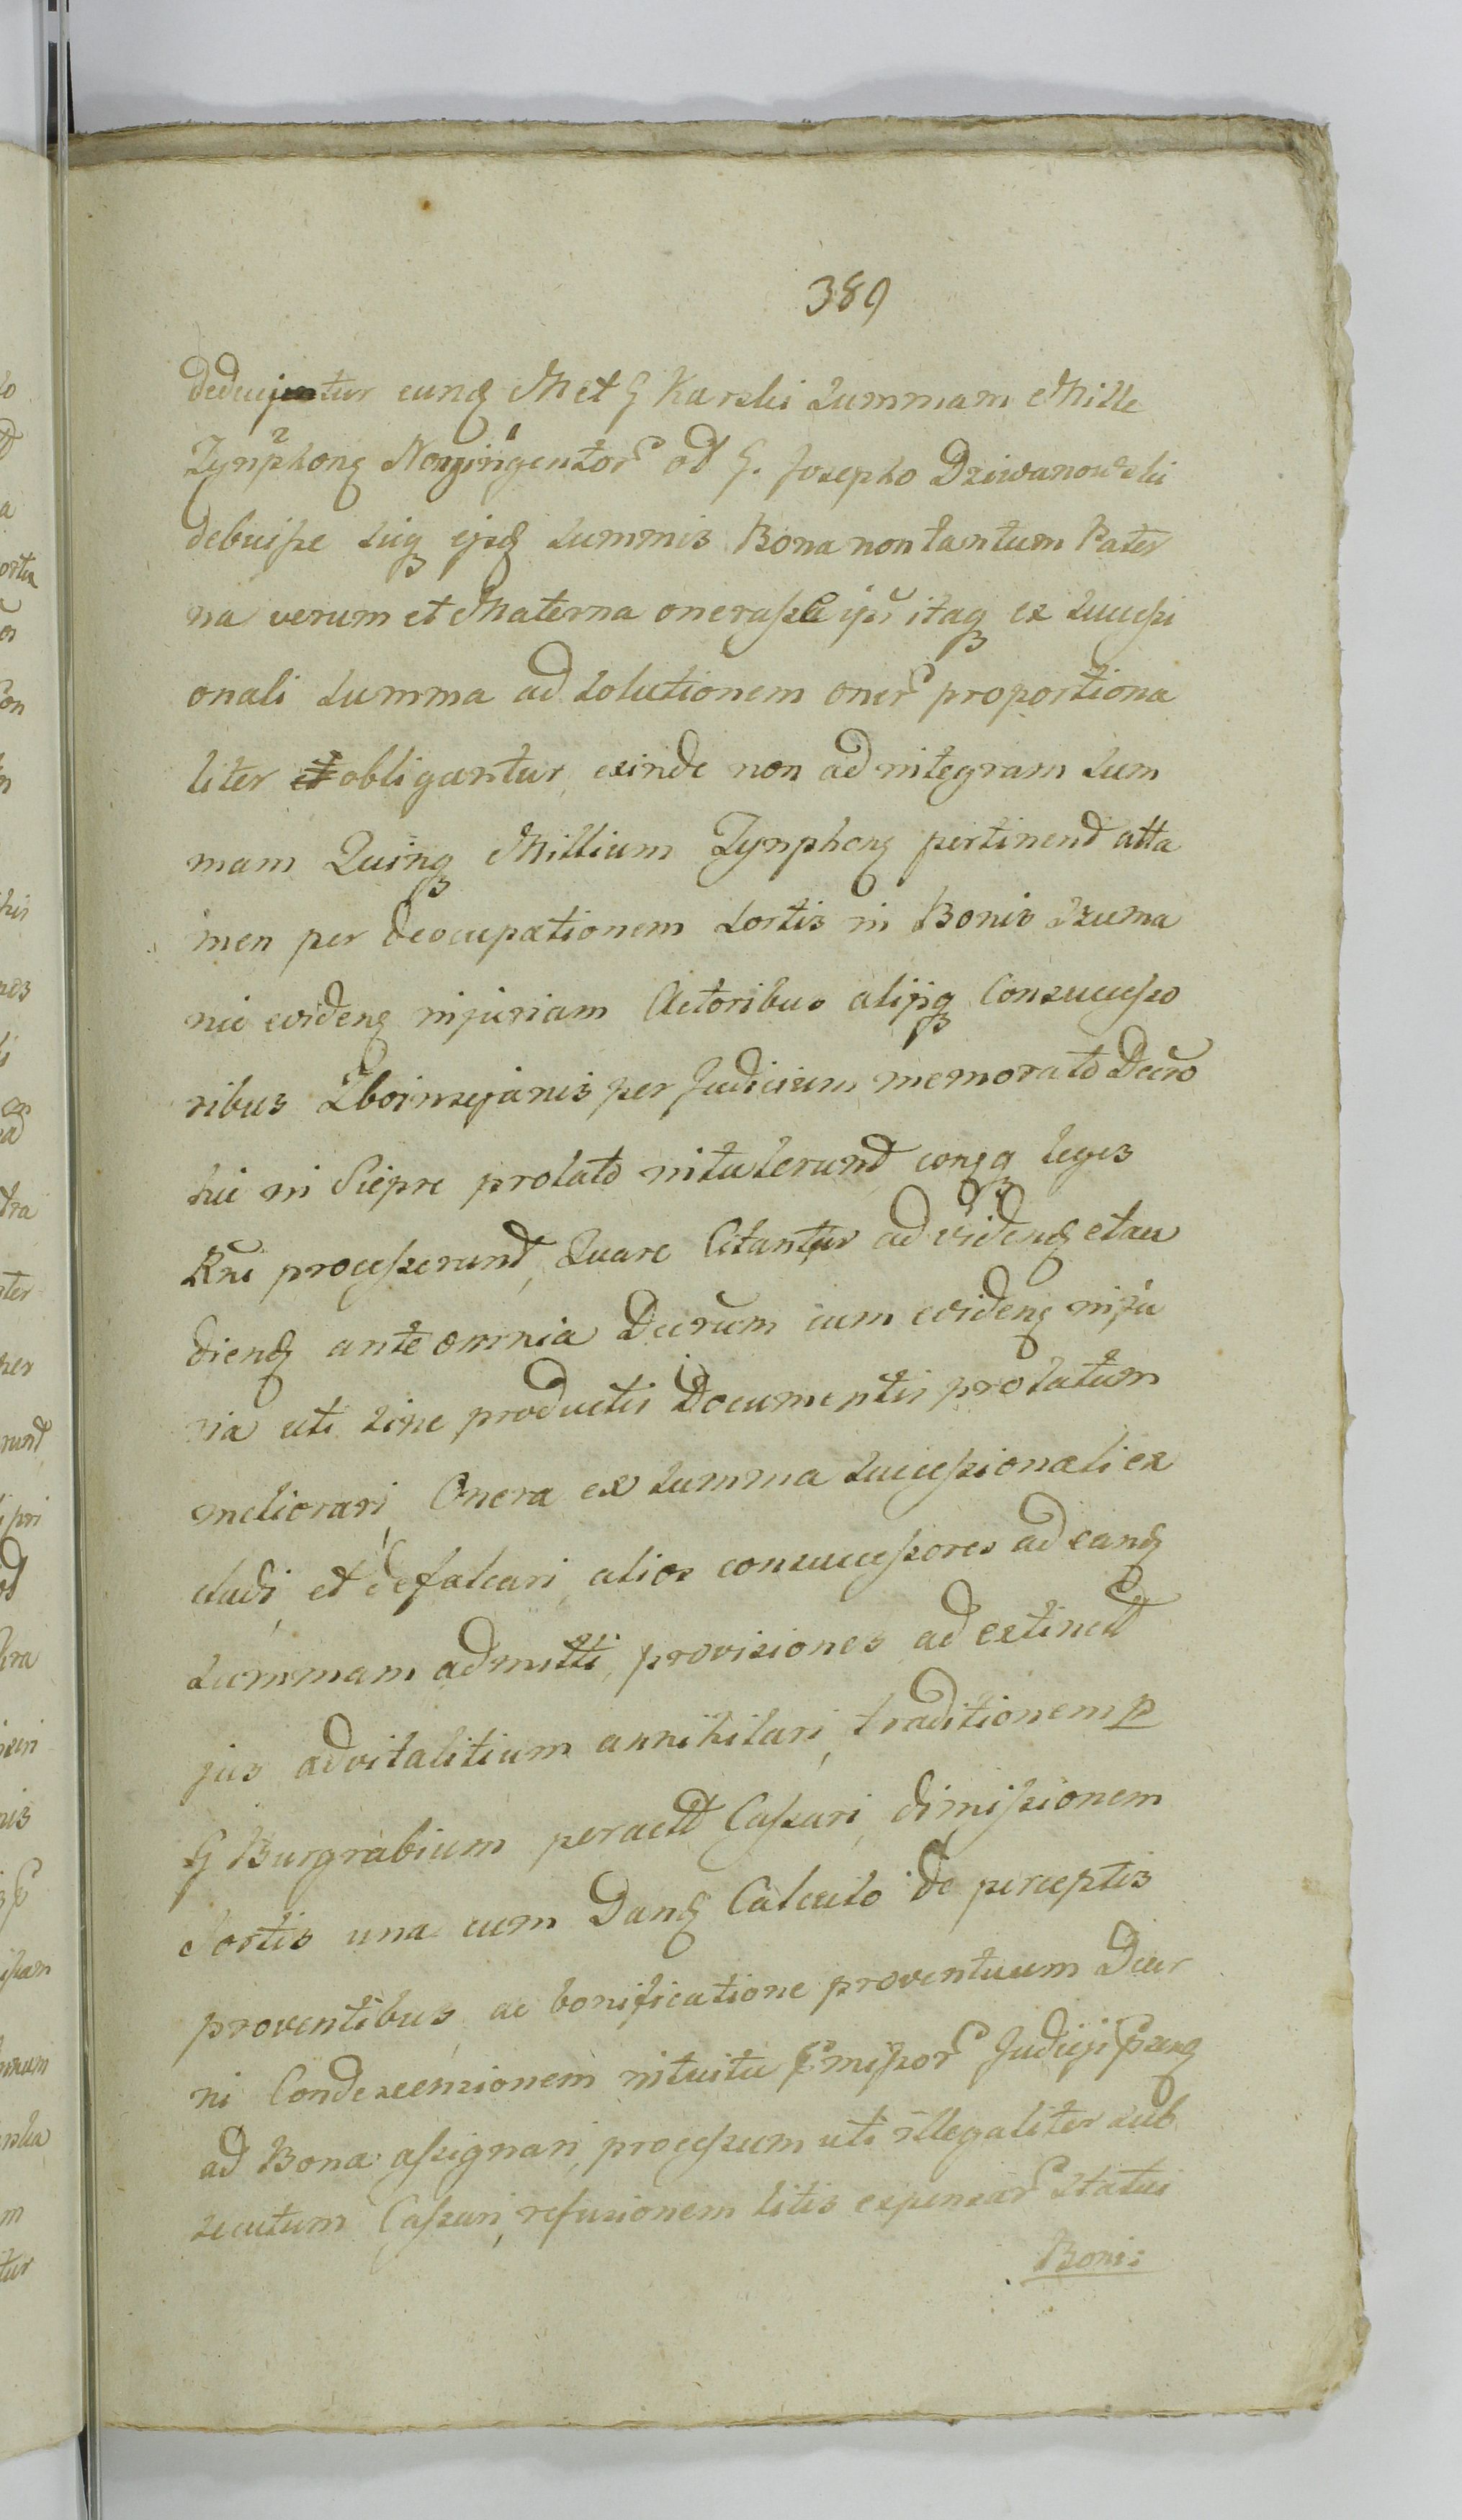 389
deducuntur eunq Met G Karski Summam Mille
Tynphonq Nongingentor od G. Josepho Dziwanowski
debuisse suiq ejsq summis Bona non tantum Pater
na verum et Materna onerasse ipsi itaq ex successi
onali Summa ad Solutionem oner proportiona
liter et obligantur, exinde non ad integram Sum
mam Quinq Millium Tynphonq pertinend atta
men per deocupationem Sortis in Bonis Szuma
nie evidenq injuriam Actoribus alijsq Consucesso
ribus Zboinscjanis per Judicium memorato Decro
hic in Siepre prolato intulerund, conqq leges
Rni processerund, Quare Citantur ad videnq et au
dienq ante omnia Decrum cum evidenq inju
ria uti sine productis Documentis prolatum
meliorari, Onera ex Summa Successionali ex
cludi, et defalcari, alios consuccessores ad eanq
Summam admitti, provisiones ad extinctd
jus advitalitium annihilari, traditionem p
G Burgrabium peractd Cassari, dimissionem
Sortis una cum danq Calculo de perceptis
proventibus, ac bonificatione proventuum Decr
ni Condescensionem intuitu Præmissor Judicij Prænq
ad Bona assignari, processum uti illegaliter sub
secutum Cassari, refusionem litis expensar Statui
Bonis